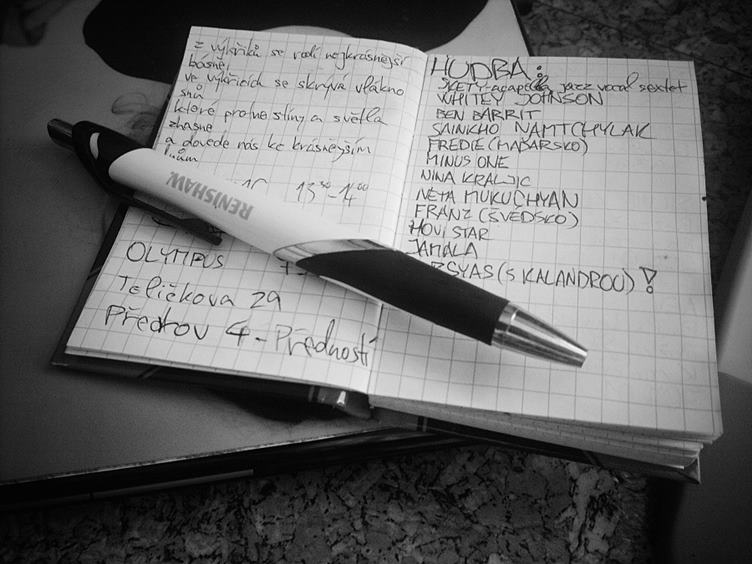 z výkřiků se rodí nejkrásnější
básně,
ve výkřicích se skrývá vlákno
snů
které protne stíny a světla
zhasne
a dovede nás ke krásnějším
13 30 - 14 00
OLYMPUS
Teličkova 29
Předkov 4 - Předmostí
RENISHAW
HUDBA:
SKETY - acapella jazz vocal sextet
WHITEY JOHNSON
BEN BARRIT
SAINKHO NAMTCHYLAK
FREDIE (MAĎARSKO)
MINUS ONE
NINA KRALJIC
NETA MUKUCHYAN
FRANZ (ŠVÉDSKO)
HOVI STAR
JAMALA
RSYAS (S KALANDROU) !